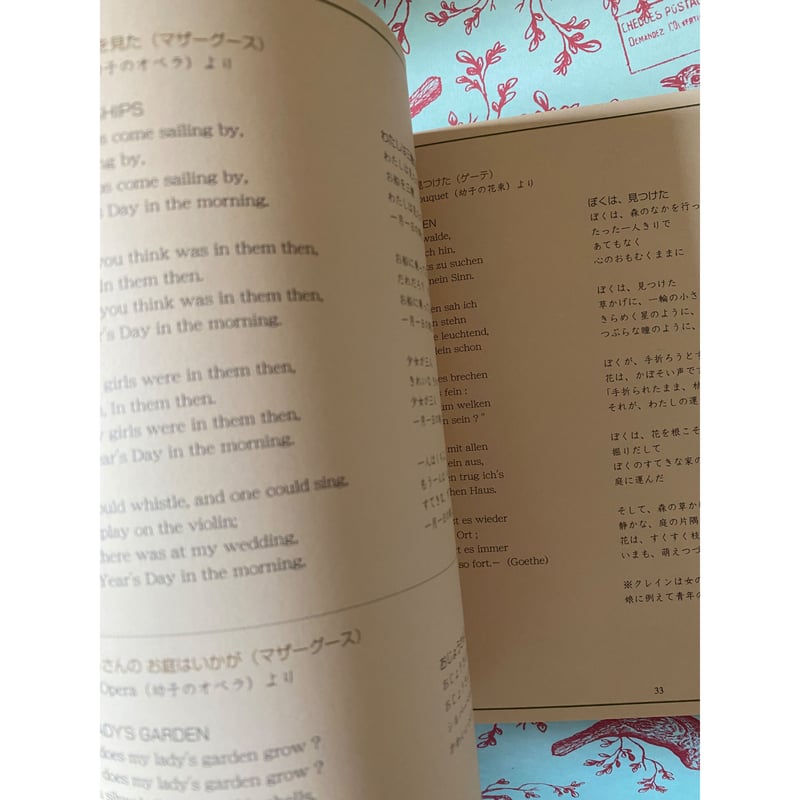 を見た（マザーグース）
（幼子のオペラ）より
SHIPS
come sailing by,
by,
come sailing by,
Day in the morning.
you think was in them then,
In them then.
you think was in them then,
Day in the morning.
girls were in them then,
In them then.
girls were in them then,
Year's Day in the morning.
could whistle, and one could sing,
play on the violin;
there was at my wedding,
Year's Day in the morning.
さんの お庭はいかが（マザーグース）
Opera（幼子のオペラ）より
LADY'S GARDEN
does my lady's garden grow ?
does my lady's garden grow ?
わたしは
わたしは
お船を三
わたしは
一月一日の
お船に乗っ
だれだろう
お船に乗っ
一月一日の
少女が三人
きれいな
少女が三人
一月一日の
一人は
もう一人は
すてきな
一月一日
CHEQUES POSTA
DEMANDEZ L'OUVERTURE
見つけた（ゲーテ）
ouquet（幼子の花束）より
EN
walde,
ch hin,
ts zu suchen
mein Sinn.
en sah ich
n stehn
e leuchtend,
lein schon
es brechen
fein :
um welken
n sein ? "
mit allen
ein aus,
en trug ich's
chen Haus.
zt es wieder
Ort ;
t es immer
so fort.－（Goethe)
ぼくは、見つけた
ぼくは、森のなかを行っ
たった一人きりで
あてもなく
心のおもむくままに
ぼくは、見つけた
草かげに、一輪の小さ
きらめく星のように、
つぶらな瞳のように、
ぼくが、手折ろうとす
花は、かぼそい声で
「手折られたまま、枯
それが、わたしの運
ぼくは、花を根こそ
掘りだして
ぼくのすてきな家の
庭に運んだ
そして、森の草か
静かな、庭の片隅
花は、すくすく枝
いまも、萌えつづ
※クレインは女の
娘に例えて青年の
33